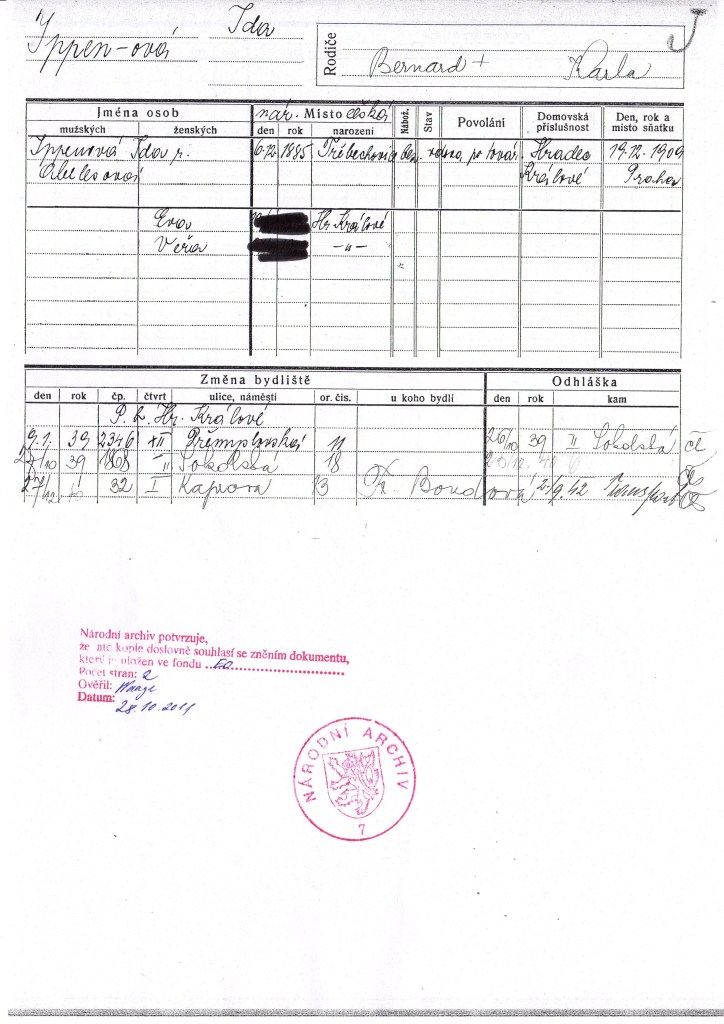 Ippen-ová Ida
Rodiče
Bernard + Karla
Jména osob
mužských ženských
nár. česká
den rok Místo narození
Nábož.
Stav
Povolání
Domovská příslušnost
Den, rok a místo sňatku
Ippenová Ida r. 6.12. 1885 Třebechovice bez. vdova po továr. Hradec 19.12.1909
Abelesová Králové Praha
Eva Hr. Králové
Věra -"-
Změna bydliště Odhláška
den rok čp. čtvrt ulice, náměstí or. čís. u koho bydlí den rok kam
P. b. Hr. Králové
9.1. 39 2346 XII Přemyslovská 11 26/10 39 II Sokolská
27/10 39 1868 " Sokolská 18
27/12 32 I Kaprova 13 2./9.42
Národní archiv potvrzuje,
že tato kopie doslovně souhlasí se zněním dokumentu,
který je uložen ve fondu
Počet stran: 2
Ověřil:
Datum: 28.10.2011
NÁRODNÍ ARCHIV
7